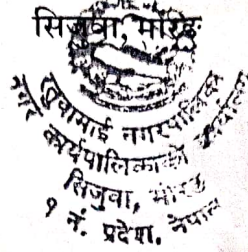 सिजुवा, मोरङ
रतुवामाई नगरपालिका
नगर कार्यपालिकाको कार्यालय
सिजुवा, मोरङ
१ नं. प्रदेश, नेपाल